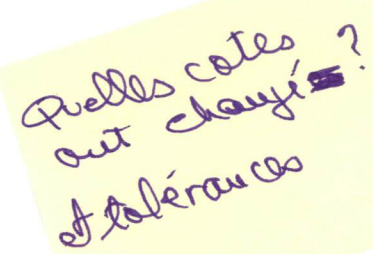 Quelles cotes
ont changé ?
Et tolérances